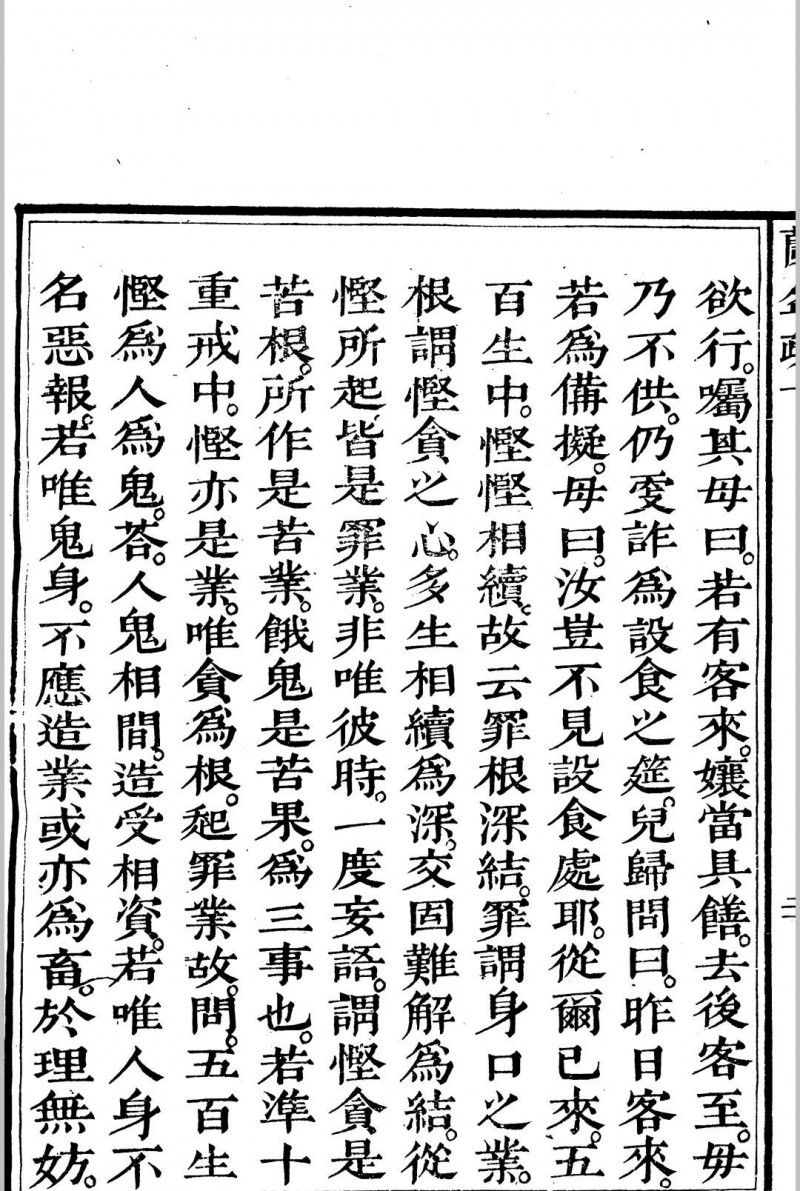 欲行。囑其母曰。若有客來。孃當具饍。去後客至。母
乃不供。仍更詐為設食之筵。兒歸問曰。昨日客來。
若為備擬。母曰。汝豈不見設食處耶。從爾已來。五
百生中。慳慳相續。故云罪根深結。罪謂身口之業。
根謂慳貪之心。多生相續為深。交固難解為結。從
慳所起皆是罪業。非唯彼時。一度妄語。謂慳貪是
苦根。所作是苦業。餓鬼是苦果。為三事也。若準十
重戒中。慳亦是業。唯貪為根。起罪業故。問。五百生
慳為人為鬼。荅。人鬼相間。造受相資。若唯人身不
名惡報。若唯鬼身。不應造業或亦為畜。於理無妨。